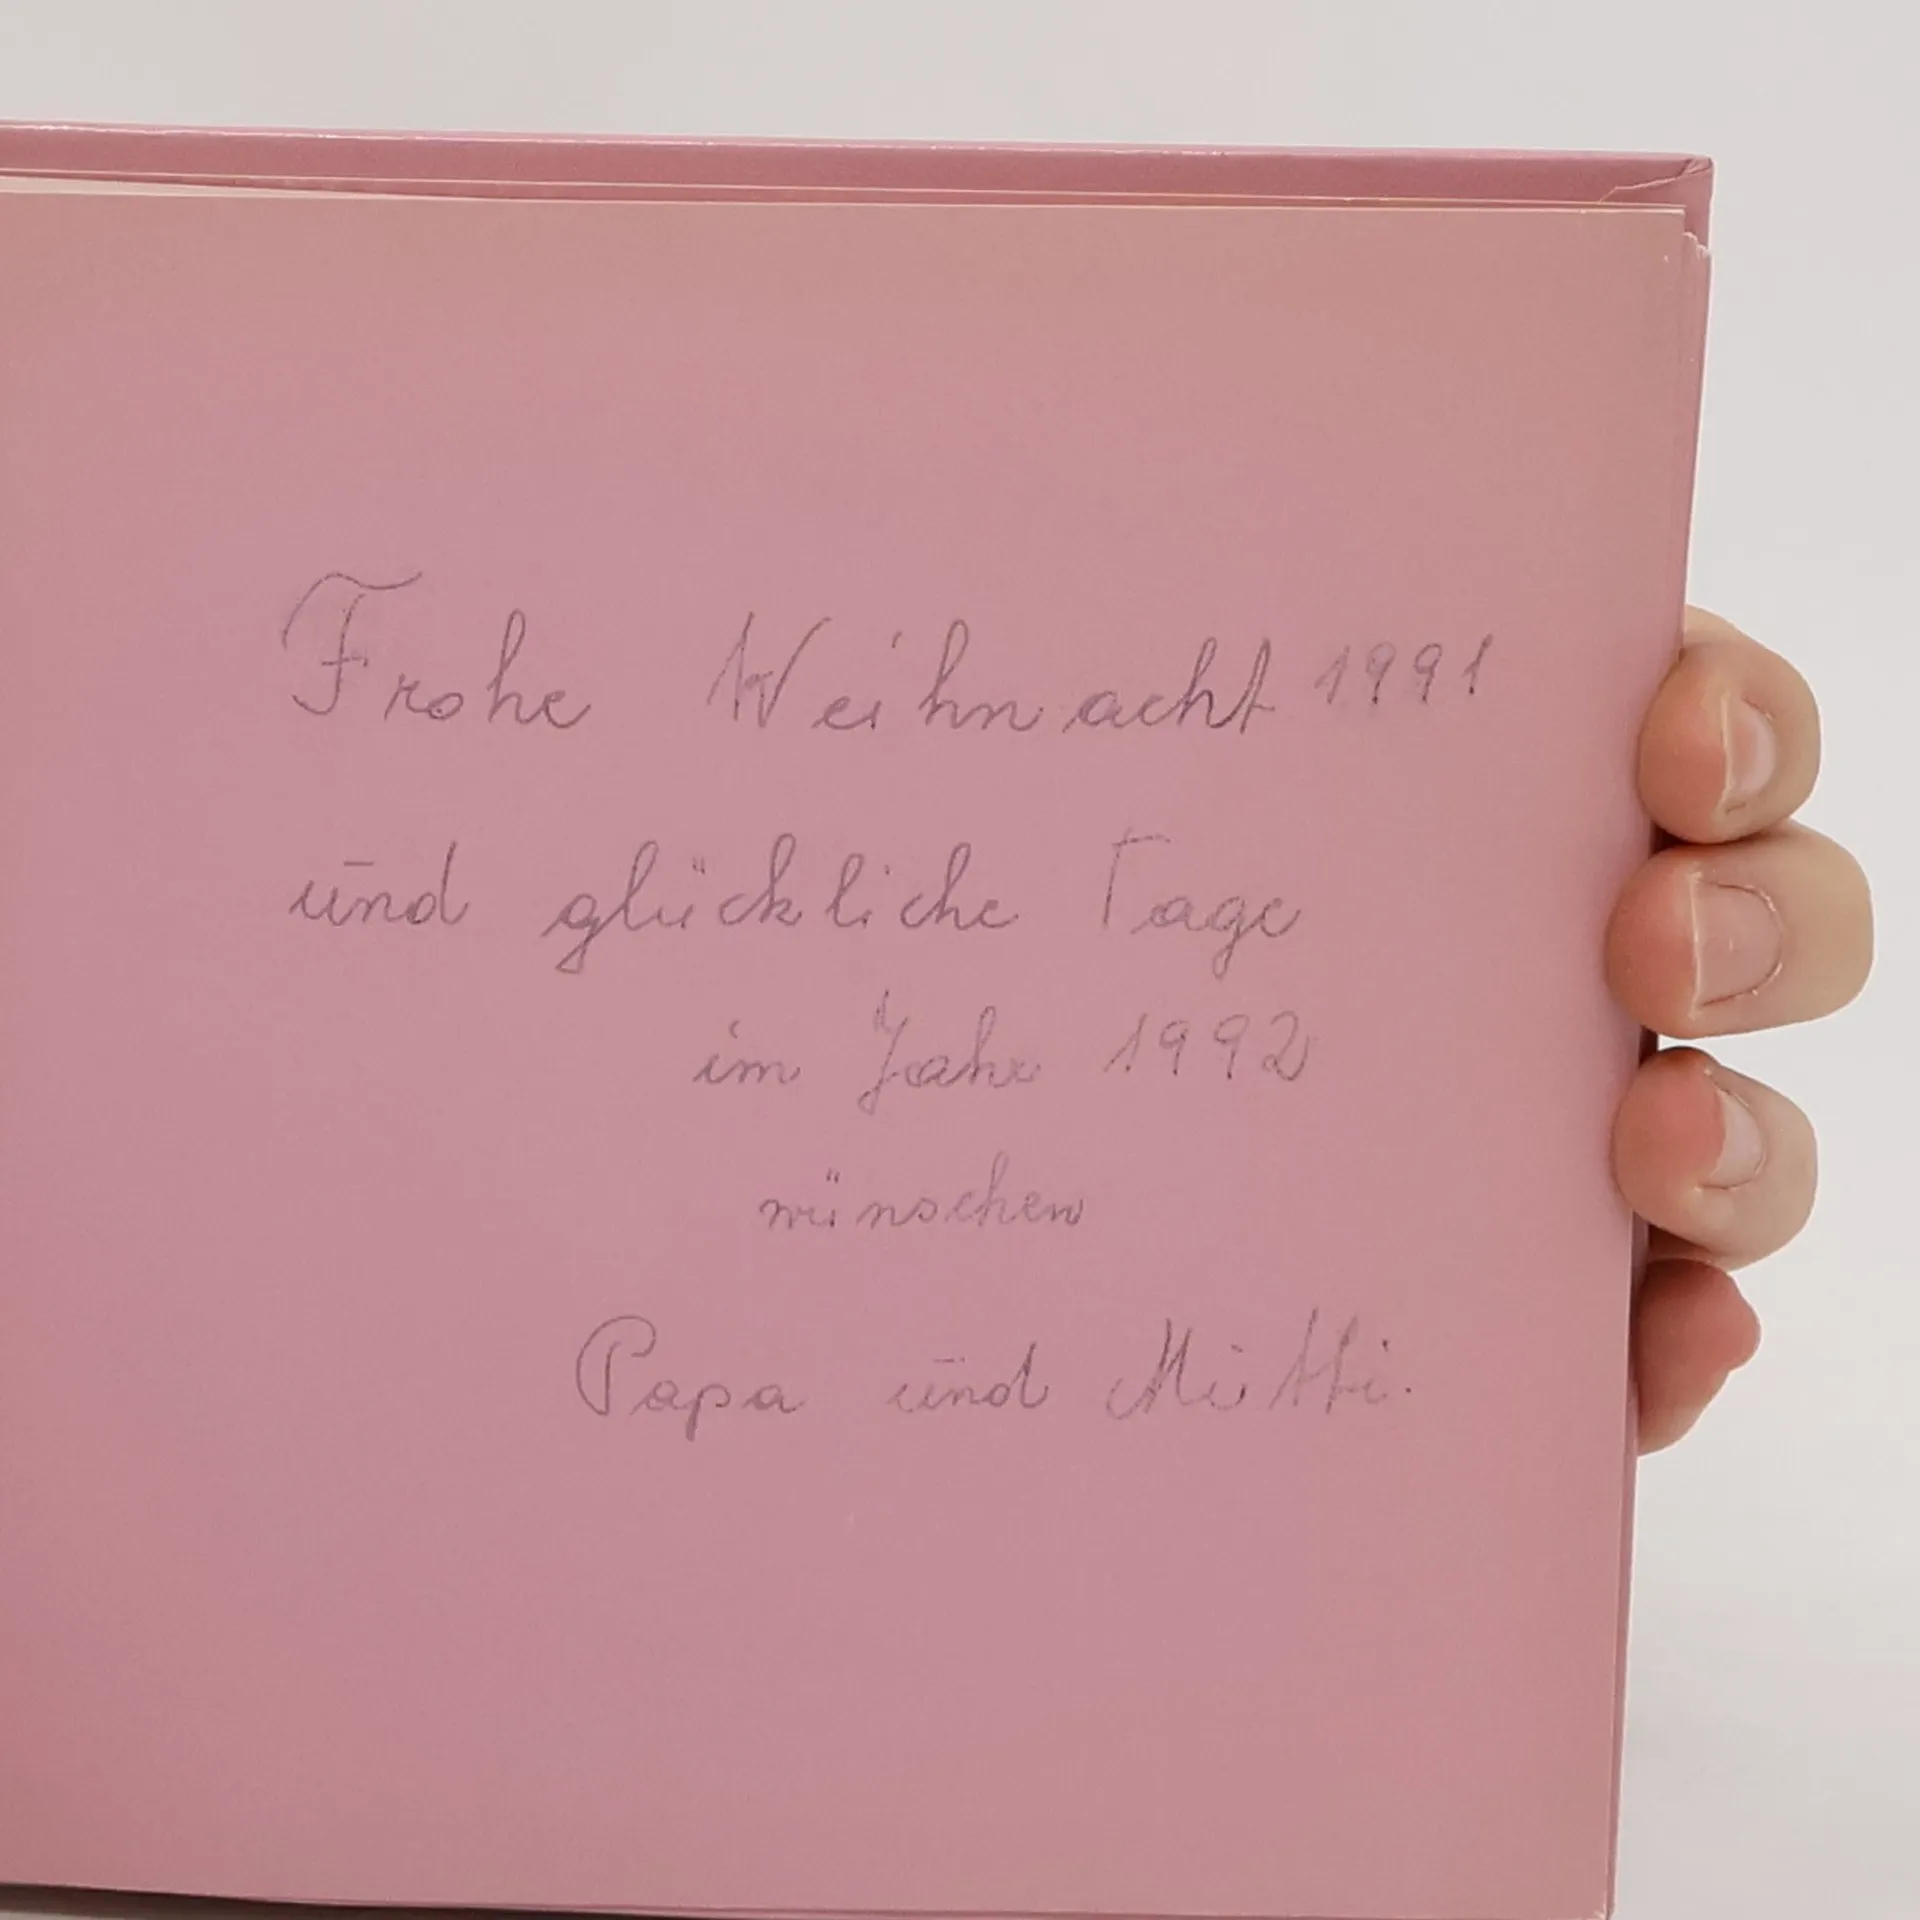 Frohe Weihnacht 1991
und glückliche Tage
im Jahr 1992
wünschen
Papa und Mutti.